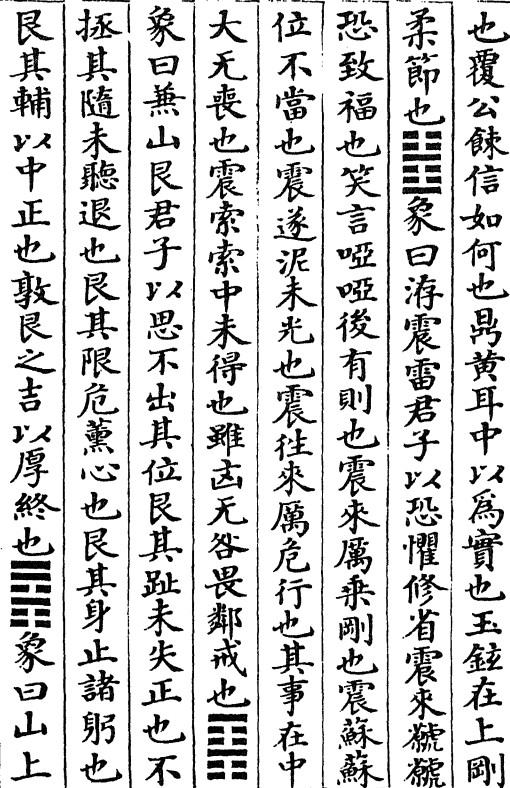 也覆公餗信如何也鼎黄耳中以爲實也玉鉉在上剛
柔節也䷲象曰洊震雷君子以恐懼修省震來虩虩
恐致福也笑言啞啞後有則也震來厲乗剛也震蘇蘇
位不當也震遂泥未光也震徃來厲危行也其事在中
大无喪也震索索中未得也雖凶无咎畏鄰戒也䷳
象曰兼山艮君子以思不出其位艮其趾未失正也不
拯其隨未聽退也艮其限危薰心也艮其身止諸躬也
艮其輔以中正也敦艮之吉以厚終也䷴象曰山上